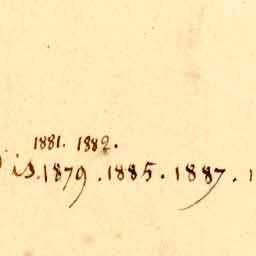 1881. 1882.
is. 1879. 1885. 1887.